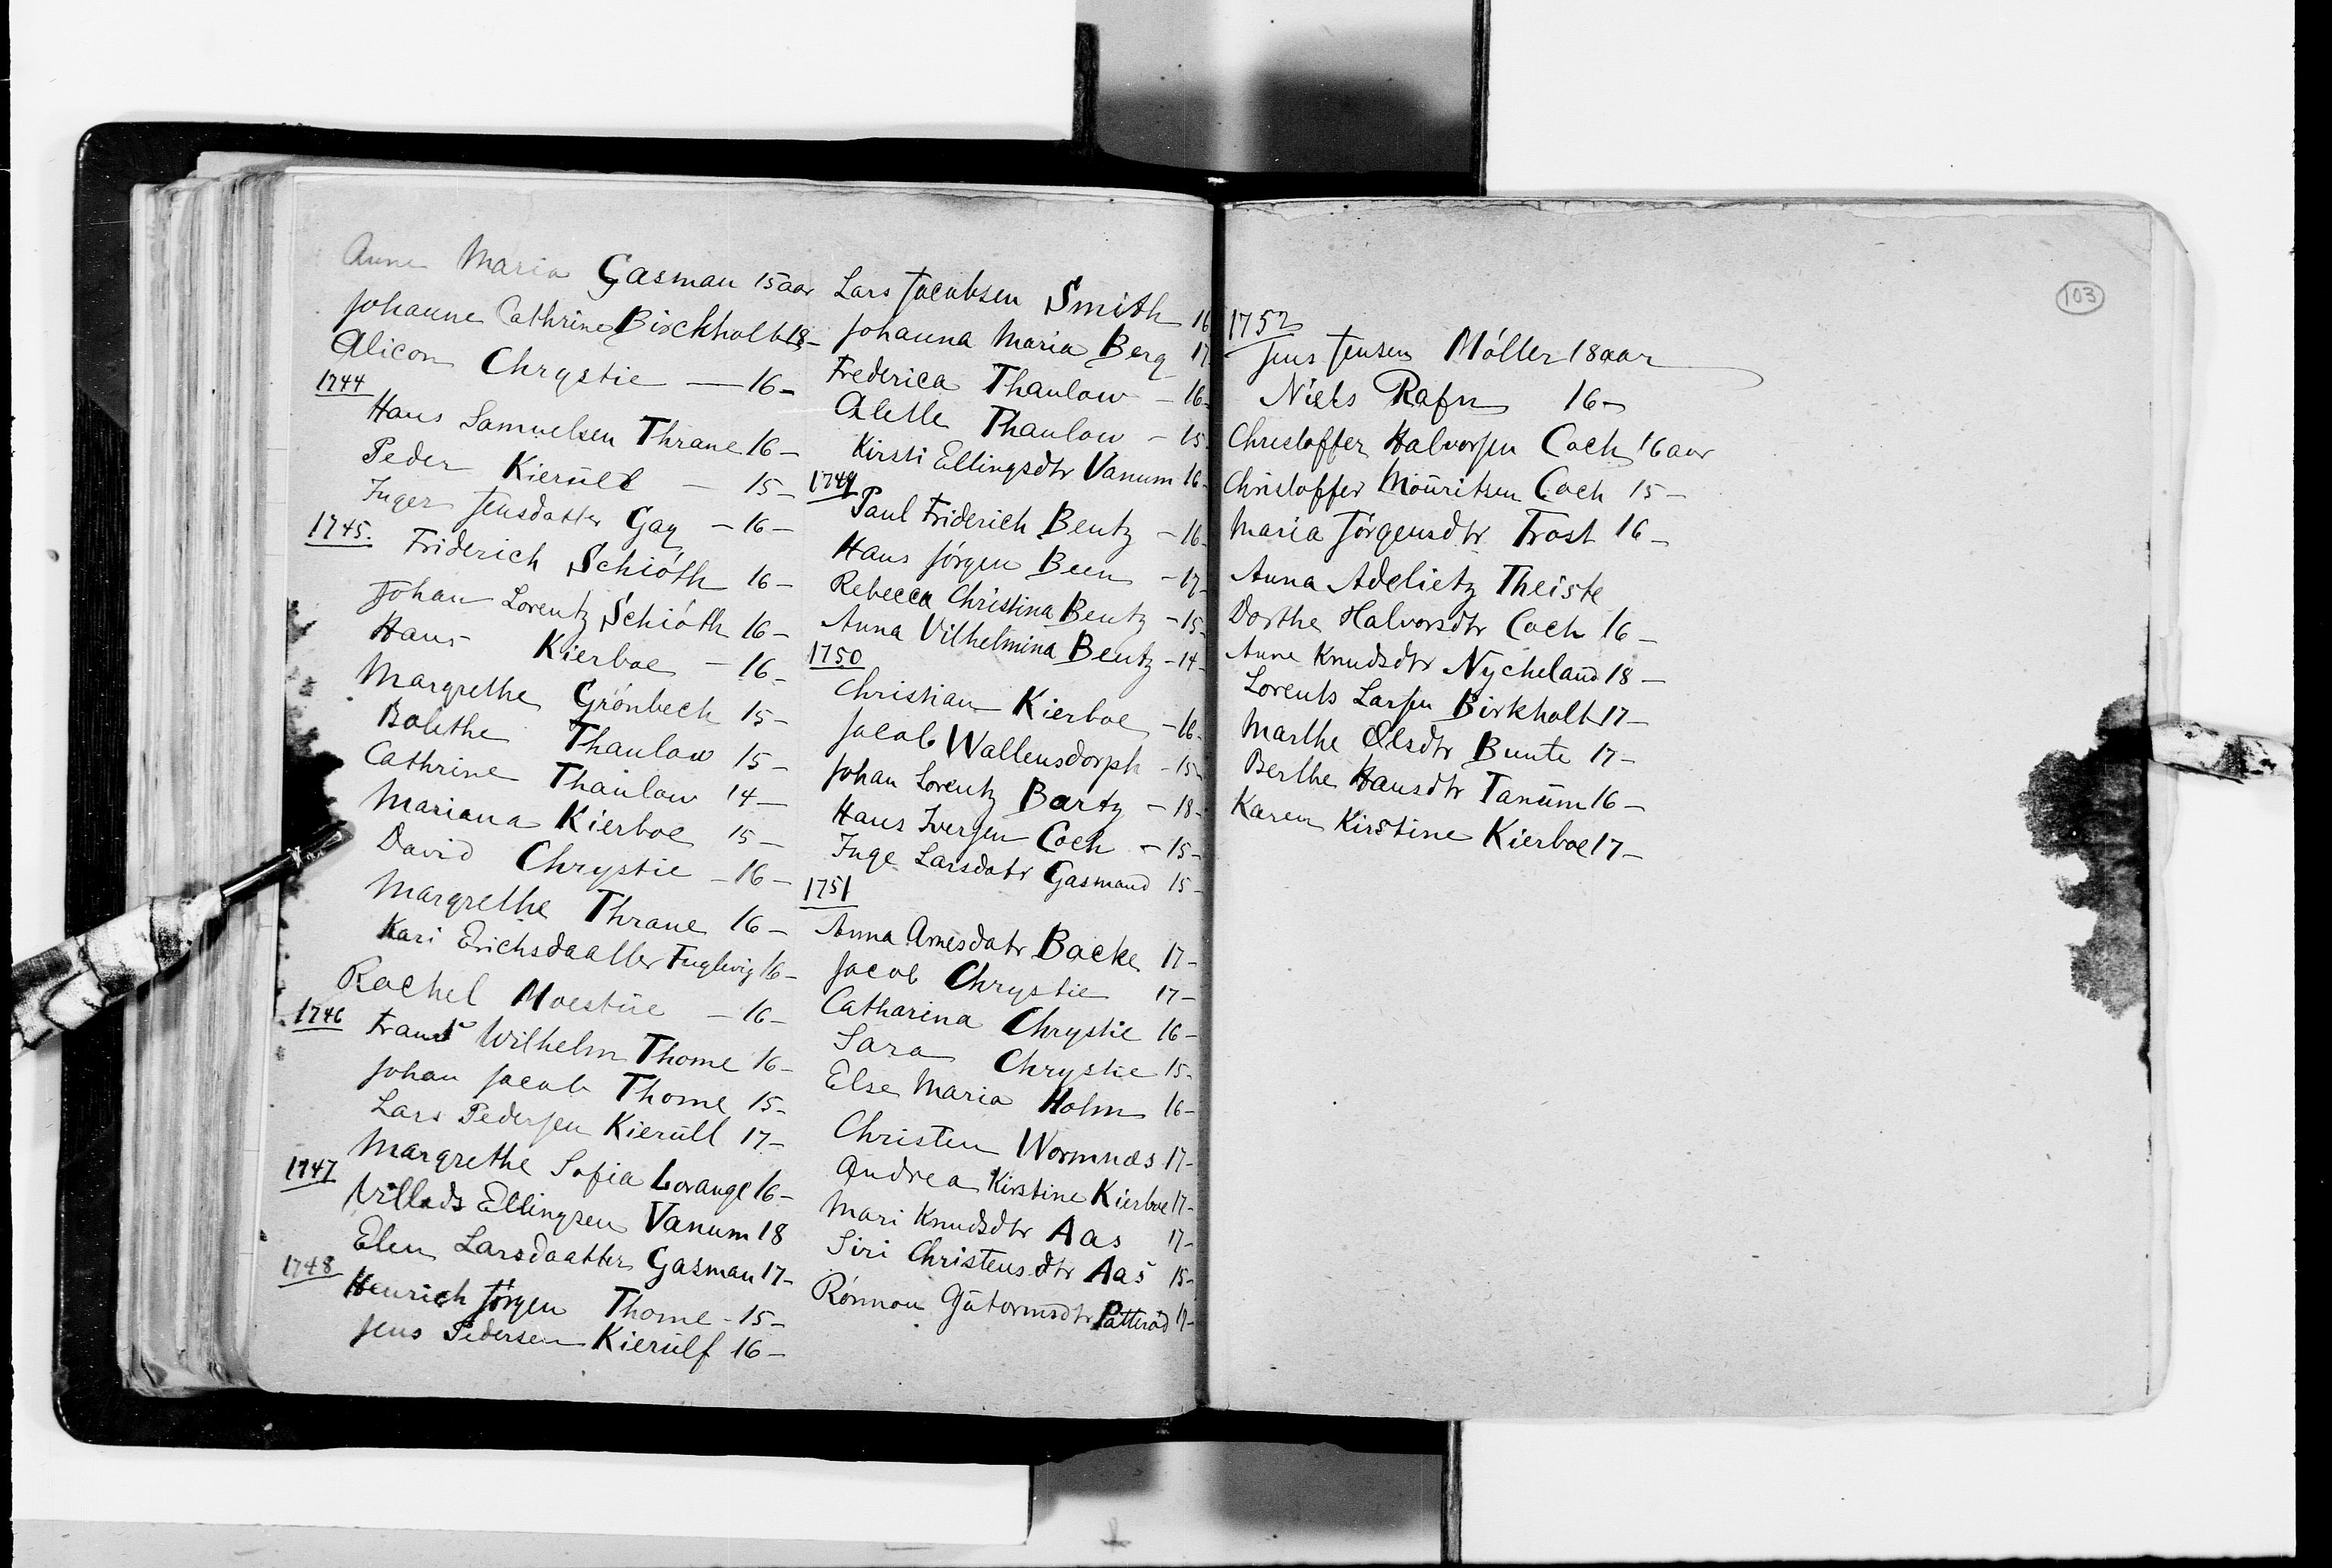 Anne Maria Gasman 15 aar
Johanne Cathrine Birckholt 18 -
Alicon Chrystie — 16 -
1744
Hans Samuelsen Thrane 16 -
Peder Kierülf - 15 -
Inger Jensdatter Gay - 16 -
1745.
Friderich Schiöth 16 -
Johan Lorentz Schiöth 16 -
Hans Kierboe - 16 -
Margrethe Grönbech 15 -
Bolethe Thaulow 15 -
Cathrine Thaulow 14 -
Mariana Kierboe 15 -
David Chrystie - 16 -
Margrethe Thrane 16 -
Kari Erichsdaatter Fuglevig 16 -
Rachel Moestüe - 16 -
1746
Frants Wilhelm Thome 16 -
Johan Jacob Thome 15 -
Lars Pedersen Kierülf 17 -
Margrethe Sofia Lorange 16 -
1747
Villads Ellingsen Vanum 18
Elen Larsdaatter Gasman 17 -
1748
Henrich Jörgen Thome - 15 -
Jens Pedersen Kierülf 16 -
Lars Jacobsen Smith 16
Johanna Maria Berg 17
Frederica Thaulow - 16 -
Aletle Thaulow - 15 -
Kirsti Ellingsdtr Vanum 16 -
1749
Paul Friderich Bentz - 16 -
Hans Jörgen Been - 17 -
Rebecca Christina Bentz - 15 -
Anna Vilhelmina Bentz - 14 -
1750
Christian Kierboe - 16 -
Jacob Wallensdorph - 15 -
Johan Lorentz Bartz - 18 -
Hans Iversen Coch - 15 -
Inge Larsdatr Gasmand 15 -
1751
Anna Arnesdatr Backe 17 -
Jacob Chrystie 17 -
Catharina Chrystie 16 -
Sara Chrystie 15 -
Else Maria Holm 16 -
Christen Wormnæs 17 -
Andrea Kirstine Kierboe 17 -
Mari Knudsdtr Aas 17 -
Siri Christensdtr Aas 15 -
Rönnou Gütormsdtr Patteröd 17 -
103
1752
Jens Jensen Möller 18 aar
Niels Rafn 16 -
Christoffer Halvorsen Coch 16 aar
Christoffer Mouritsen Coch 15 -
Maria Jörgensdtr Trost 16 -
Anna Adelietz Theiste
Dorthe Halvorsdtr Coch 16 -
Anne Knudsdtr Nycheland 18 -
Lorents Larsen Birkholt 17 -
Marthe Olsdtr Bunte 17 -
Berthe Hansdtr Tanum 16 -
Karen Kirstine Kierboe 17 -